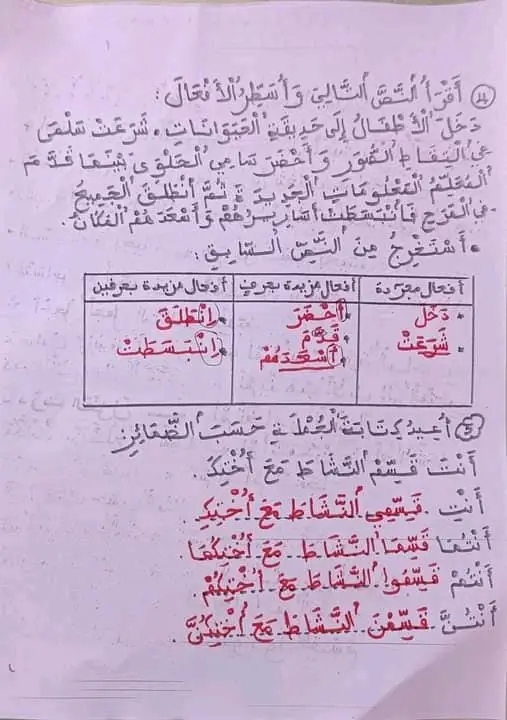 ④ أَقْرَأُ النَّصَّ التَّالِيَ وَأُسَطِّرُ الْأَفْعَالَ :
دَخَلَ الْأَطْفَالُ إِلَى حَدِيقَةِ الْحَيَوَانَاتِ، شَرَعَتْ سَلْمَى
فِي الْتِقَاطِ الصُّوَرِ وَ أَحْضَرَ سَامِي الْحَلْوَى بَيْنَمَا قَدَّمَ
الْمُعَلِّمُ الْمَعْلُومَاتِ الْجَدِيدَةَ ثُمَّ انْطَلَقَ الْجَمِيعُ
فِي الْمَرَحِ فَانْبَسَطَتْ أَسَارِيرُهُمْ وَ أَسْعَدَهُمُ الْمَكَانُ.
• أَسْتَخْرِجُ مِنَ النَّصِّ السَّابِقِ :
أفعال مجرّدة | أفعال مزيدة بحرف | أفعال مزيدة بحرفين
• دَخَلَ | • أَحْضَرَ | • اِنْطَلَقَ
• شَرَعَتْ | • قَدَّمَ | • اِنْبَسَطَتْ
• أَسْعَدَهُمْ
⑤ أُعِيدُ كِتَابَةَ الْجُمْلَةِ حَسَبَ الضَّمَائِرِ
أَنْتَ قَسِّمِ النَّشَاطَ مَعَ أُخْتِكَ.
أَنْتِ قَسِّمِي النَّشَاطَ مَعَ أُخْتِكِ.
أَنْتُمَا قَسِّمَا النَّشَاطَ مَعَ أُخْتِكُمَا.
أَنْتُمْ قَسِّمُوا النَّشَاطَ مَعَ أُخْتِكُمْ.
أَنْتُنَّ قَسِّمْنَ النَّشَاطَ مَعَ أُخْتِكُنَّ.